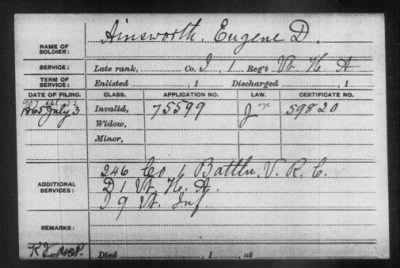 NAME OF SOLDIER: Ainsworth, Eugene D.
SERVICE: Late rank, Co. I, 1 Reg't Vt. H. A
TERM OF SERVICE: Enlisted , 1 Discharged , 1
DATE OF FILING. CLASS. APPLICATION NO. LAW. CERTIFICATE NO.
1865 July 3 Invalid, 75599 59820
Widow,
Minor,
ADDITIONAL SERVICES: 246 Co 1 Battln, V. R. C.
D 1 Vt. H. A.
I 9 Vt. Inf
REMARKS:
Died , 1 , at